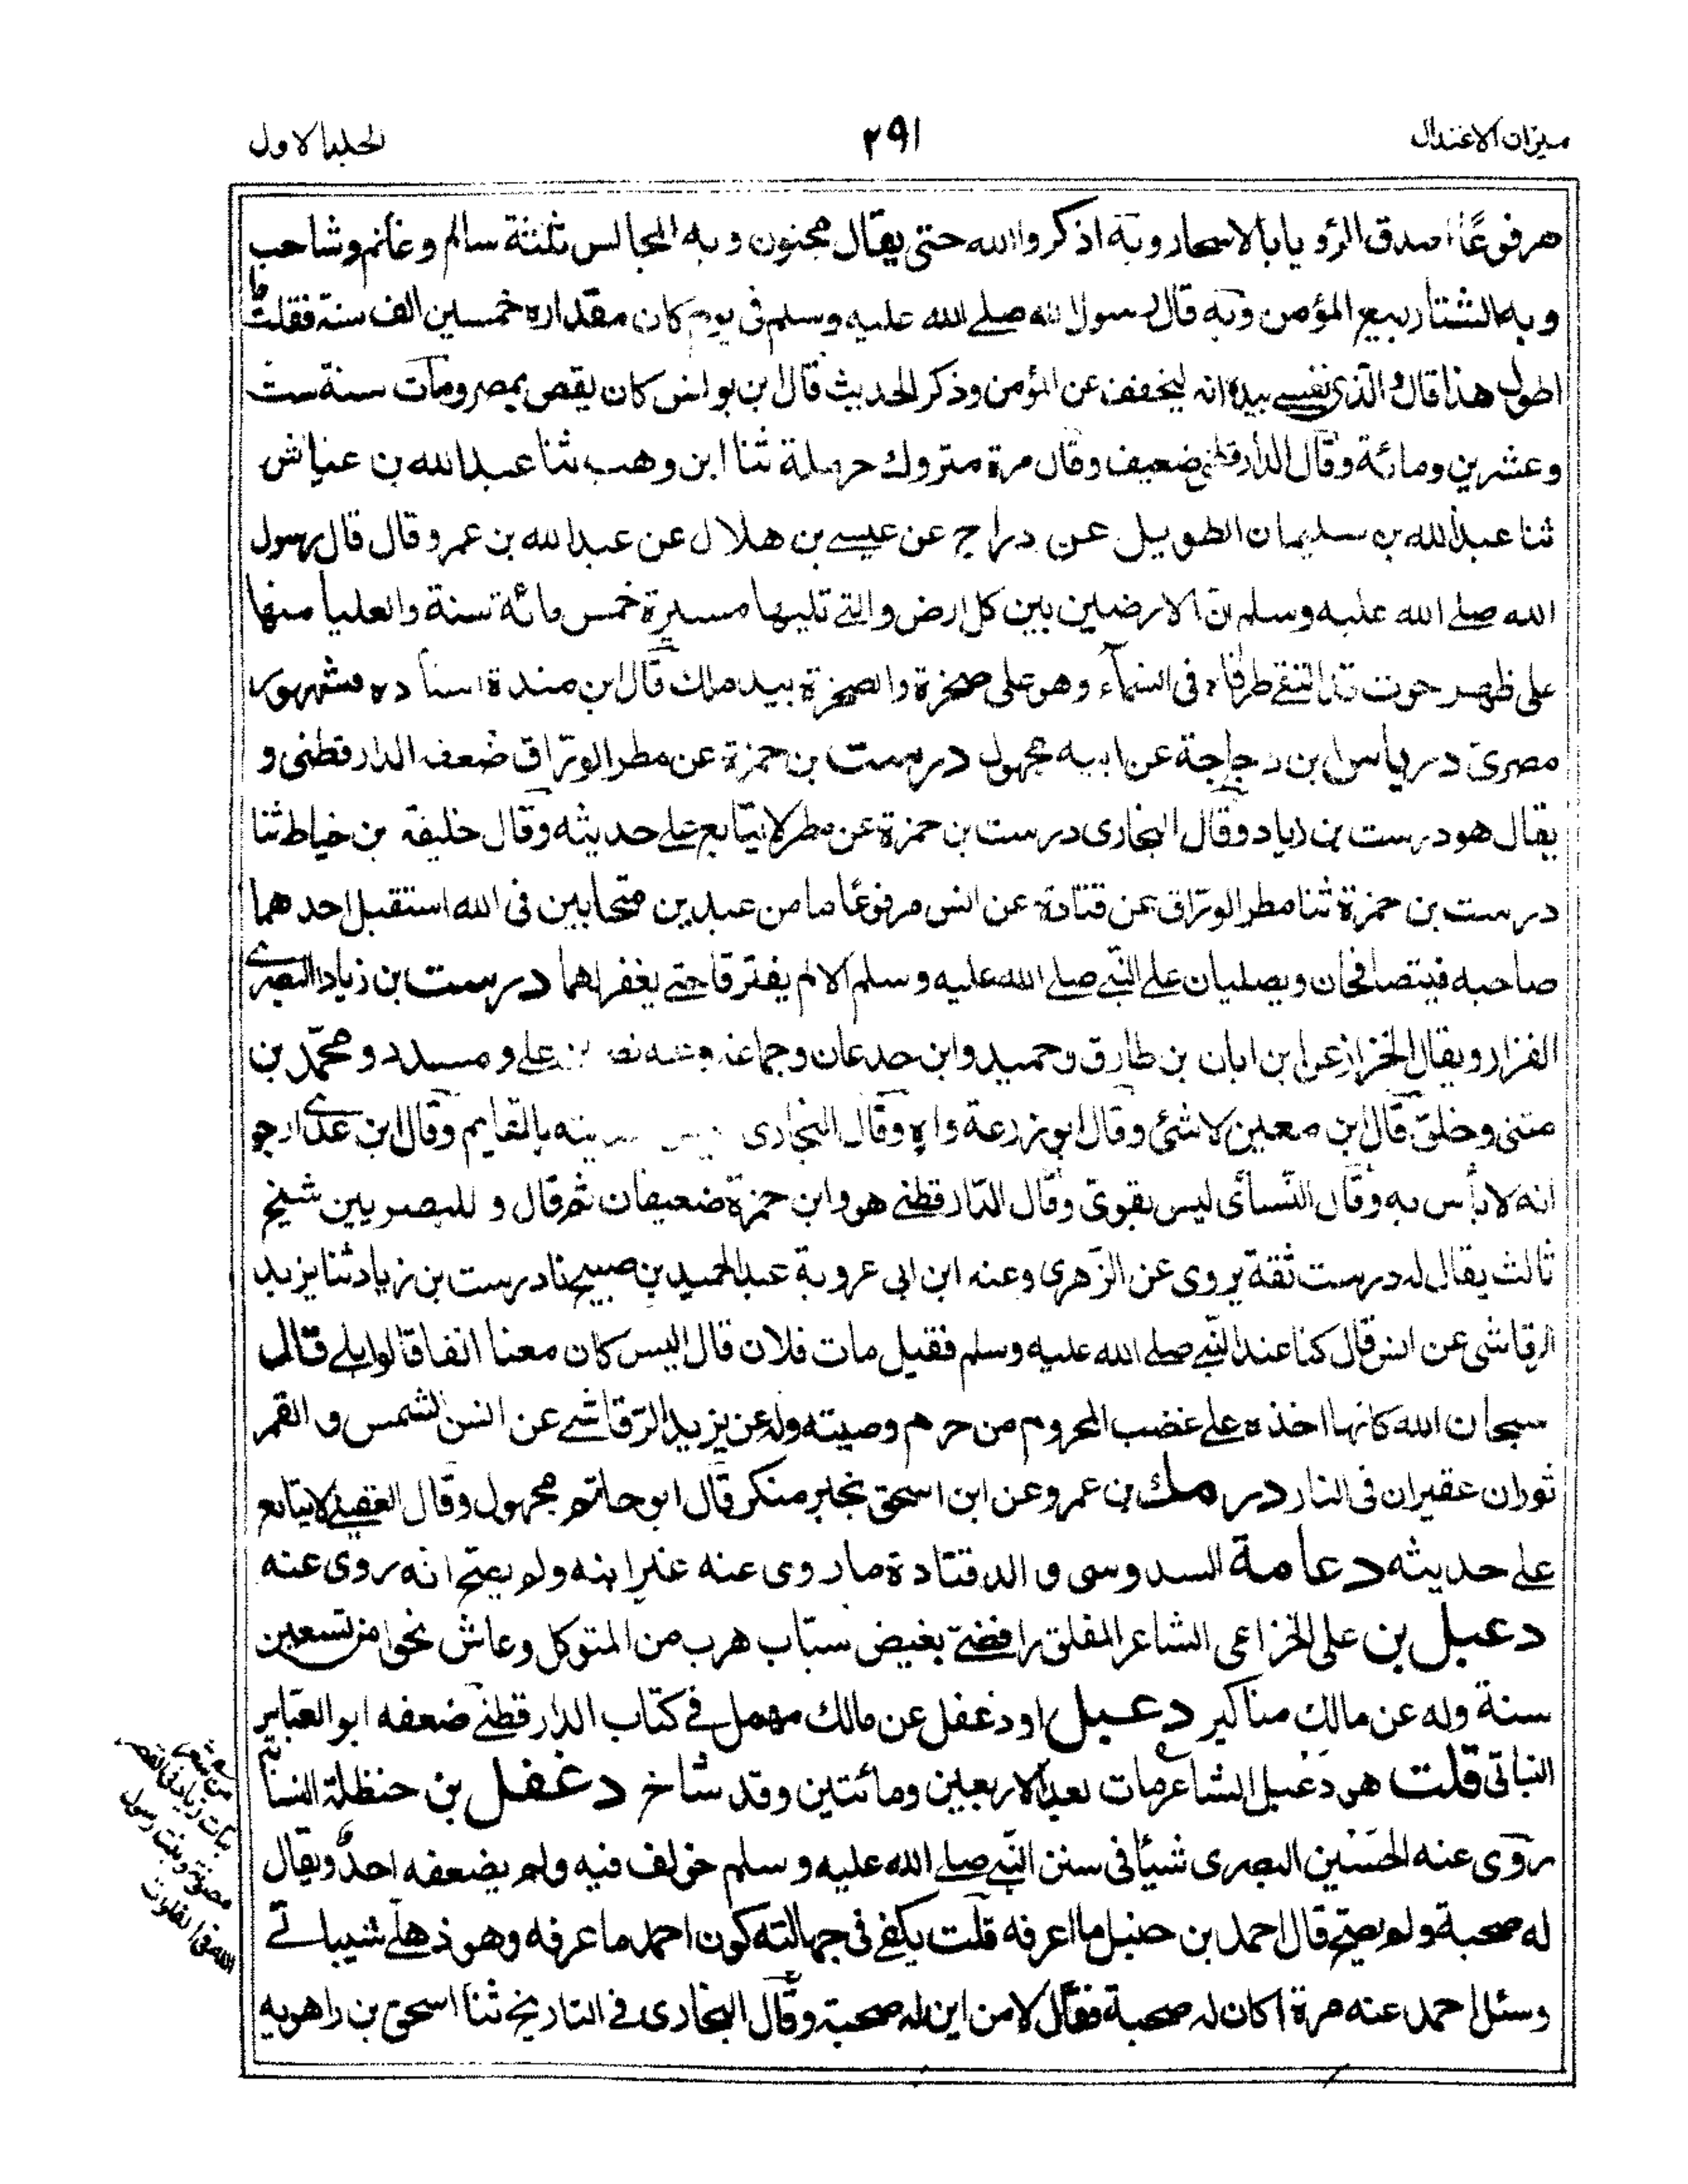 ميزان الاعتدال
٢٩١
الجلد الاول
مرفوعًا اصدق الرؤيا بالاسحار وبه اذكروا الله حتى يقال مجنون وبه المجالس ثلثة سالم وغانم وشاحب
وبه الشتاء ربيع المؤمن وبه قال رسول الله صلے الله عليه وسلم فى يوم كان مقداره خمسين الف سنة فقلت ما
اطول هذا قال والذى نفسے بيده انه ليخفف عن المؤمن وذكر الحديث قال ابن يونس كان يقص بمصر ومات سنة ست
وعشرين ومائة وقال الدارقطنى ضعيف وقال مرة متروك حرملة ثنا ابن وهب ثنا عبد الله بن عياش
ثنا عبد الله بن سليمان الطويل عن دراج عن عيسے بن هلال عن عبد الله بن عمرو قال قال رسول
الله صلے الله عليه وسلم ان الارضين بين كل ارض والتے تليها مسيرة خمس مائة سنة والعليا منها
على ظهر حوت قد التقے طرفاه فى السماء وهو على صخرة والصخرة بيد ملك قال ابن مندة اسناده مشهور
مصرى درياس بن دجاجة عن ابيه مجهول درست بن حمزة عن مطر الوراق ضعفه الدارقطنى و
يقال هو درست بن زياد وقال البخارى درست بن حمزة عن مطر لا يتابع علے حديثه وقال خليفة بن خياط ثنا
درست بن حمزة ثنا مطر الوراق عن قتادة عن انس مرفوعًا ما من عبدين متحابين فى الله استقبل احدهما
صاحبه فيتصافحان ويصليان علے النبے صلے الله عليه وسلم الا لم يفترقا حتے يغفر لهما درست بن زياد البصرى
القزاز ويقال الخزاز عن ابن ابان بن طارق وحميد وابن جدعان وجماعة وعنه نصر بن علے ومسدد ومحمد بن
مثنى وخلق قال ابن معين لا شئ وقال ابو زرعة واه وقال البخارى ليس حديثه بالقايم وقال ابن عدى ارجو
انه لا بأس به وقال النسائى ليس بقوى وقال الدارقطنے هو وابن حمزة ضعيفان ثم قال وللبصريين شيخ
ثالث يقال له درست ثقة يروى عن الزهرى وعنه ابن ابى عروبة عبد الحميد بن صبيح نا درست بن زياد ثنا يزيد
الرقاشى عن انس قال كنا عند النبے صلے الله عليه وسلم فقيل مات فلان قال اليس كان معنا انفا قالوا بلے قال
سبحان الله كانها اخذه علے غضب المحروم من حرم وصيته وله عن يزيد الرقاشے عن انس الشمس و القمر
ثوران عقيران فى النار درمك بن عمرو عن ابن اسحق بخبر منكر قال ابو حاتم مجهول وقال العقيلے لا يتابع
علے حديثه دعامة السدوسى و الد قتادة ما روى عنه غير ابنه ولم يصح انه روى عنه
دعبل بن على الخزاعى الشاعر المفلق رافضے بغيض سباب هرب من المتوكل وعاش نحوا من تسعين
سنة وله عن مالك مناكير دعبل او دغفل عن مالك مهمل فے كتاب الدارقطنے ضعفه ابو العباس
النباتى قلت هو دعبل الشاعر مات بعد الاربعين ومائتين وقد شاخ دغفل بن حنظلة النسابة
روى عنه الحسين البصرى شيأ فى سنن النبے صلے الله عليه وسلم خولف فيه ولم يضعفه احد ويقال
له صحبة ولم يصح قال احمد بن حنبل ما اعرفه قلت يكفے فى جهالته كون احمد ما عرفه وهو ذهلے شيبانے
وسئل احمد عنه مرة اكان له صحبة فقال لا من اين له صحبة وقال البخارى فے التاريخ ثنا اسحق بن راهويه
من شعره
بنات زياد فى القصور
مصونة وبنت رسول
الله فى الفلوات